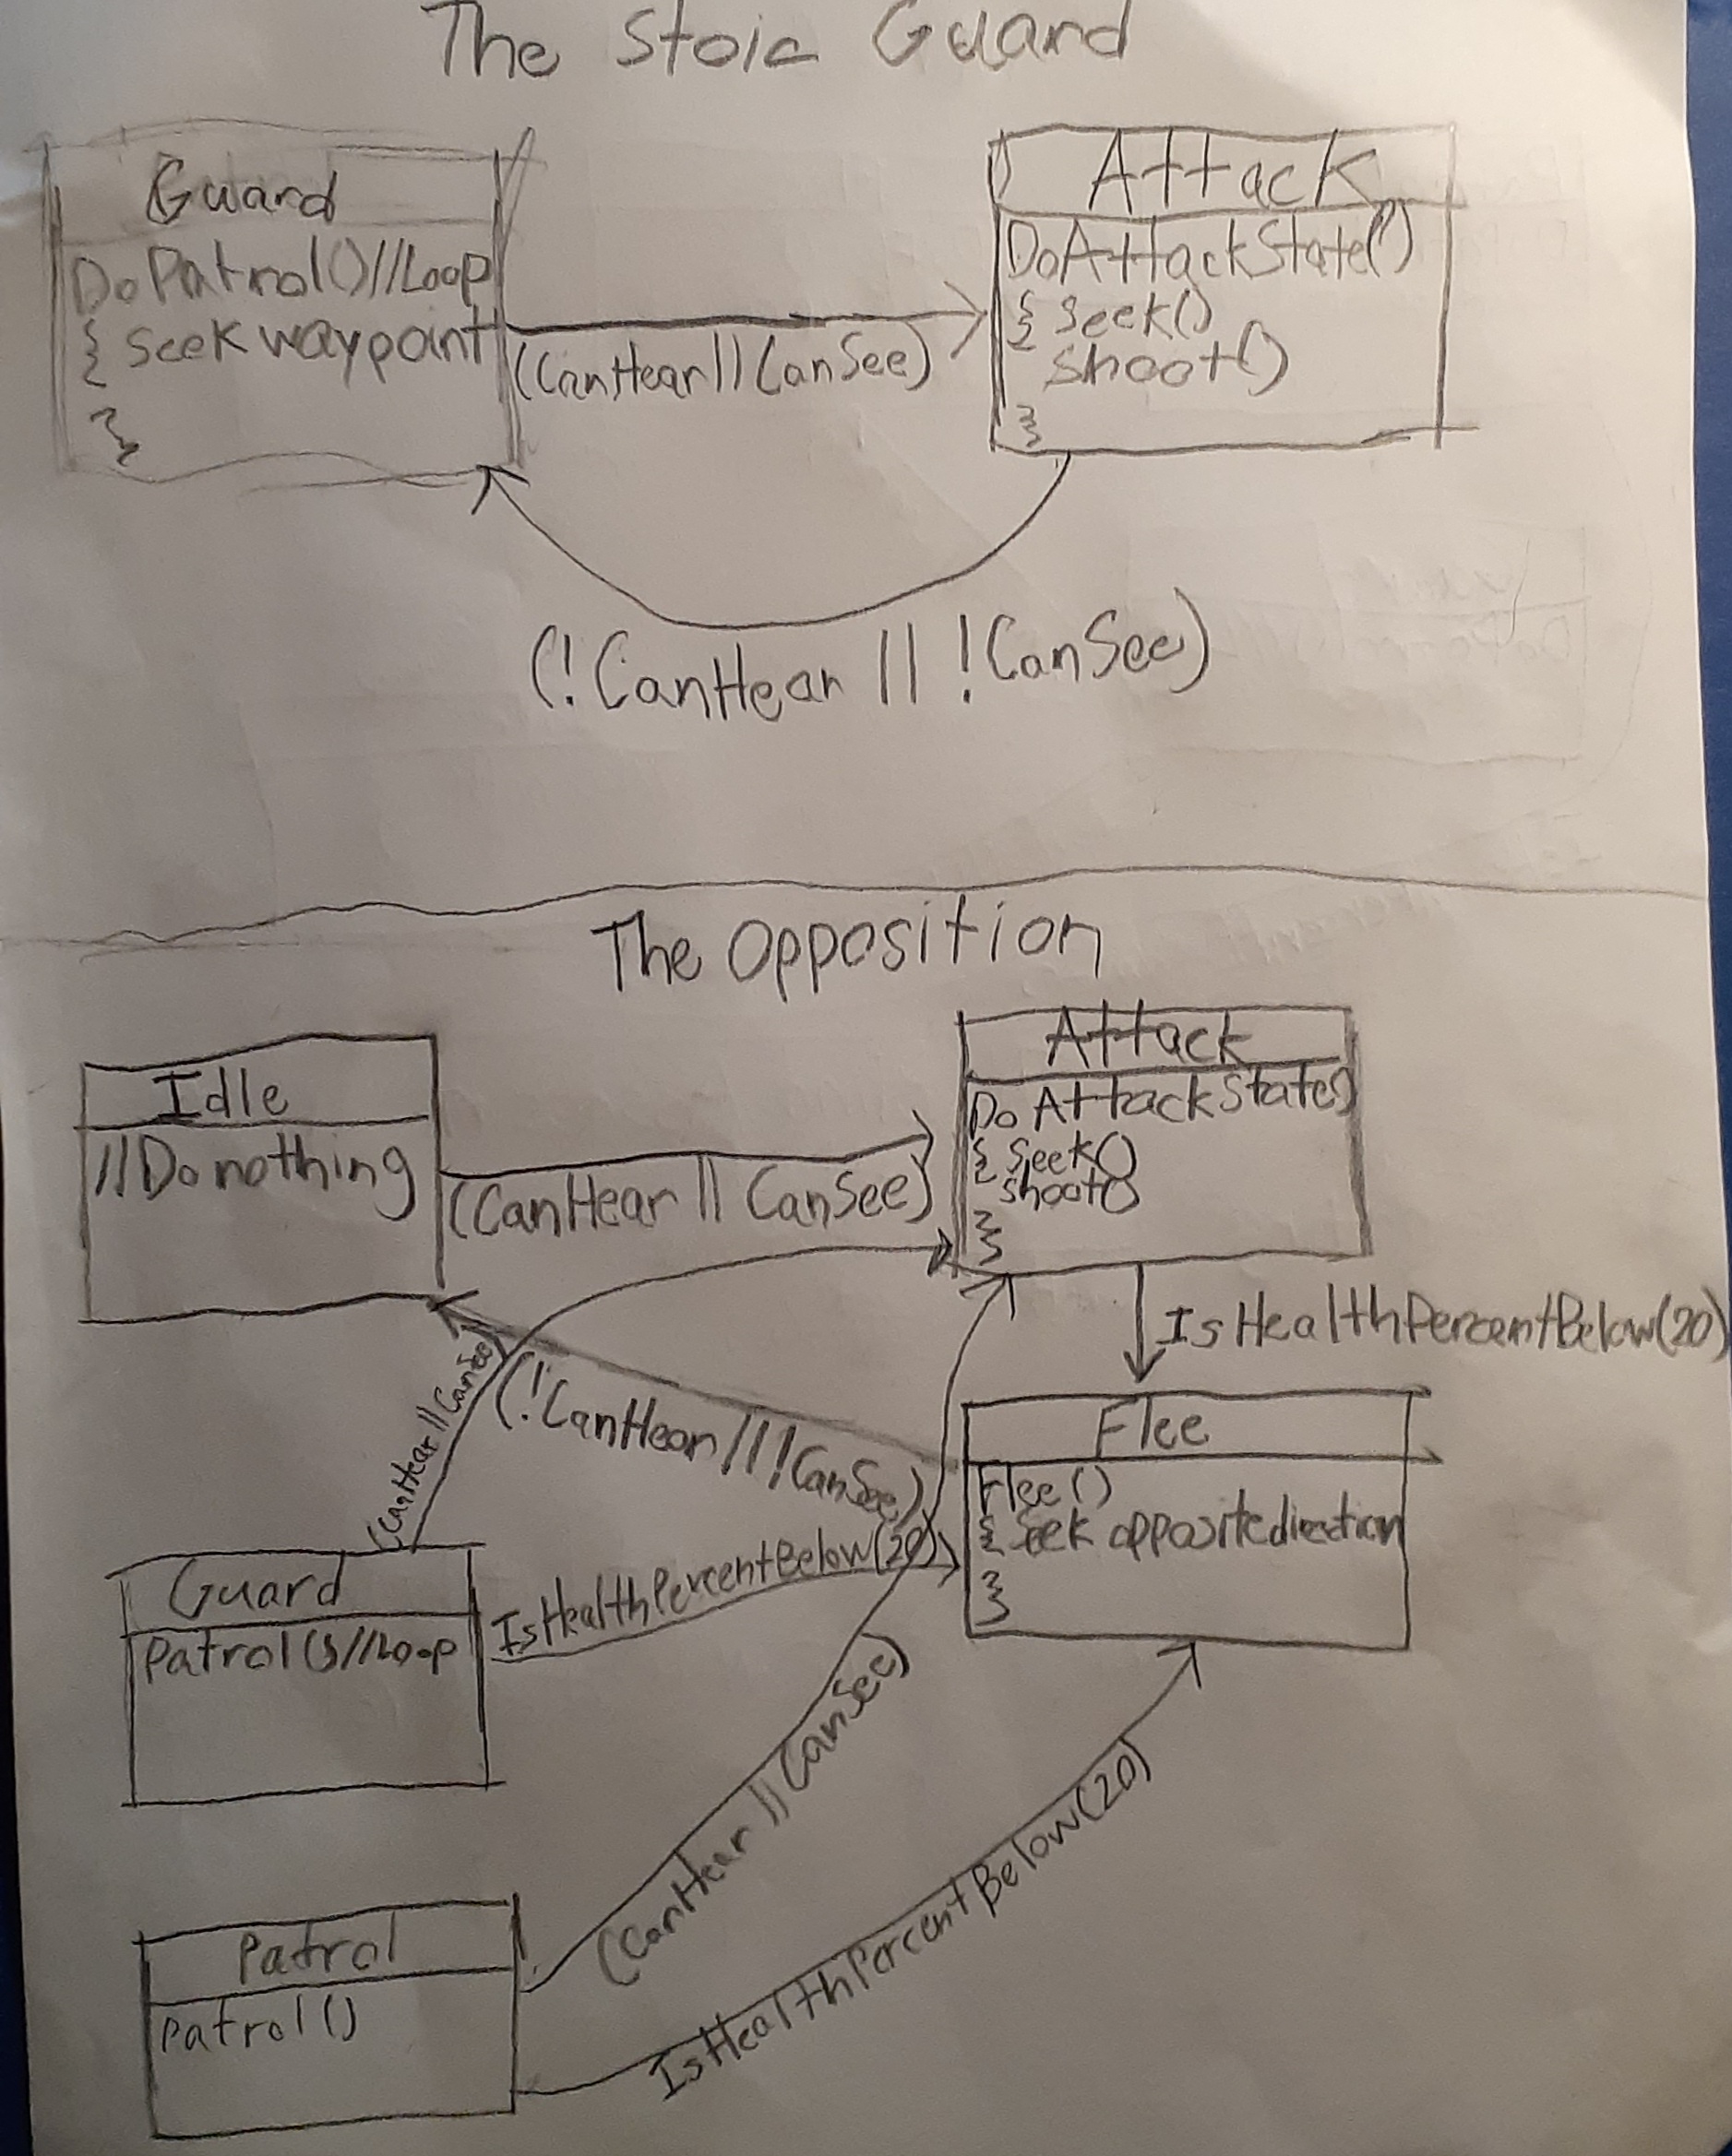 The Stoic Guard
Guard
DoPatrol()//Loop
{ seek waypoint
}
(CanHear || CanSee)
Attack
DoAttackState()
{ seek()
shoot()
}
(!CanHear || !CanSee)
The Opposition
Idle
//Do nothing
(CanHear || CanSee)
Attack
Do AttackState()
{ seek()
shoot()
}
IsHealthPercentBelow(20)
(CanHear || CanSee)
(!CanHear || !CanSee)
Flee
Flee()
{ seek opposite direction
}
Guard
Patrol()//Loop
IsHealthPercentBelow(20)
(CanHear || CanSee)
Patrol
Patrol()
IsHealthPercentBelow(20)